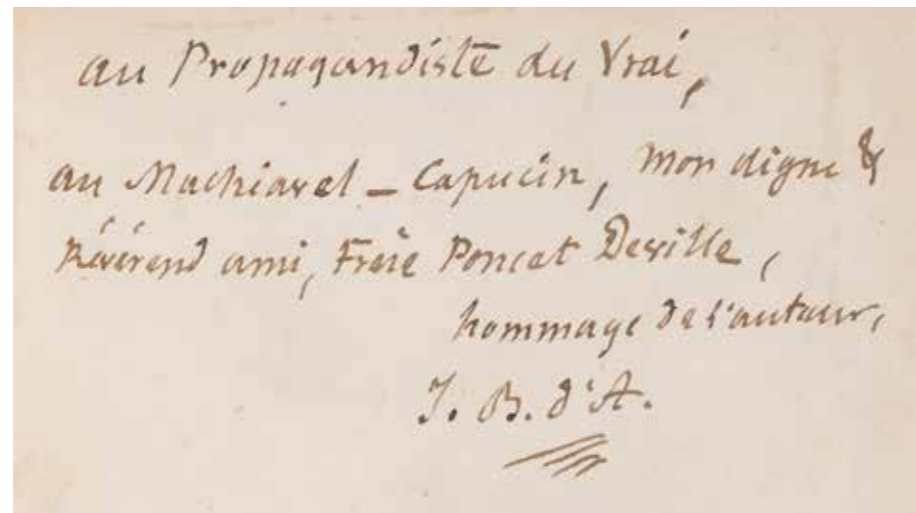 au Propagandiste du Vrai,
au Machiavel - Capucin, mon digne &
Révérend ami, Frère Poncet Deville,
hommage de l'auteur,
J. B. d'A.